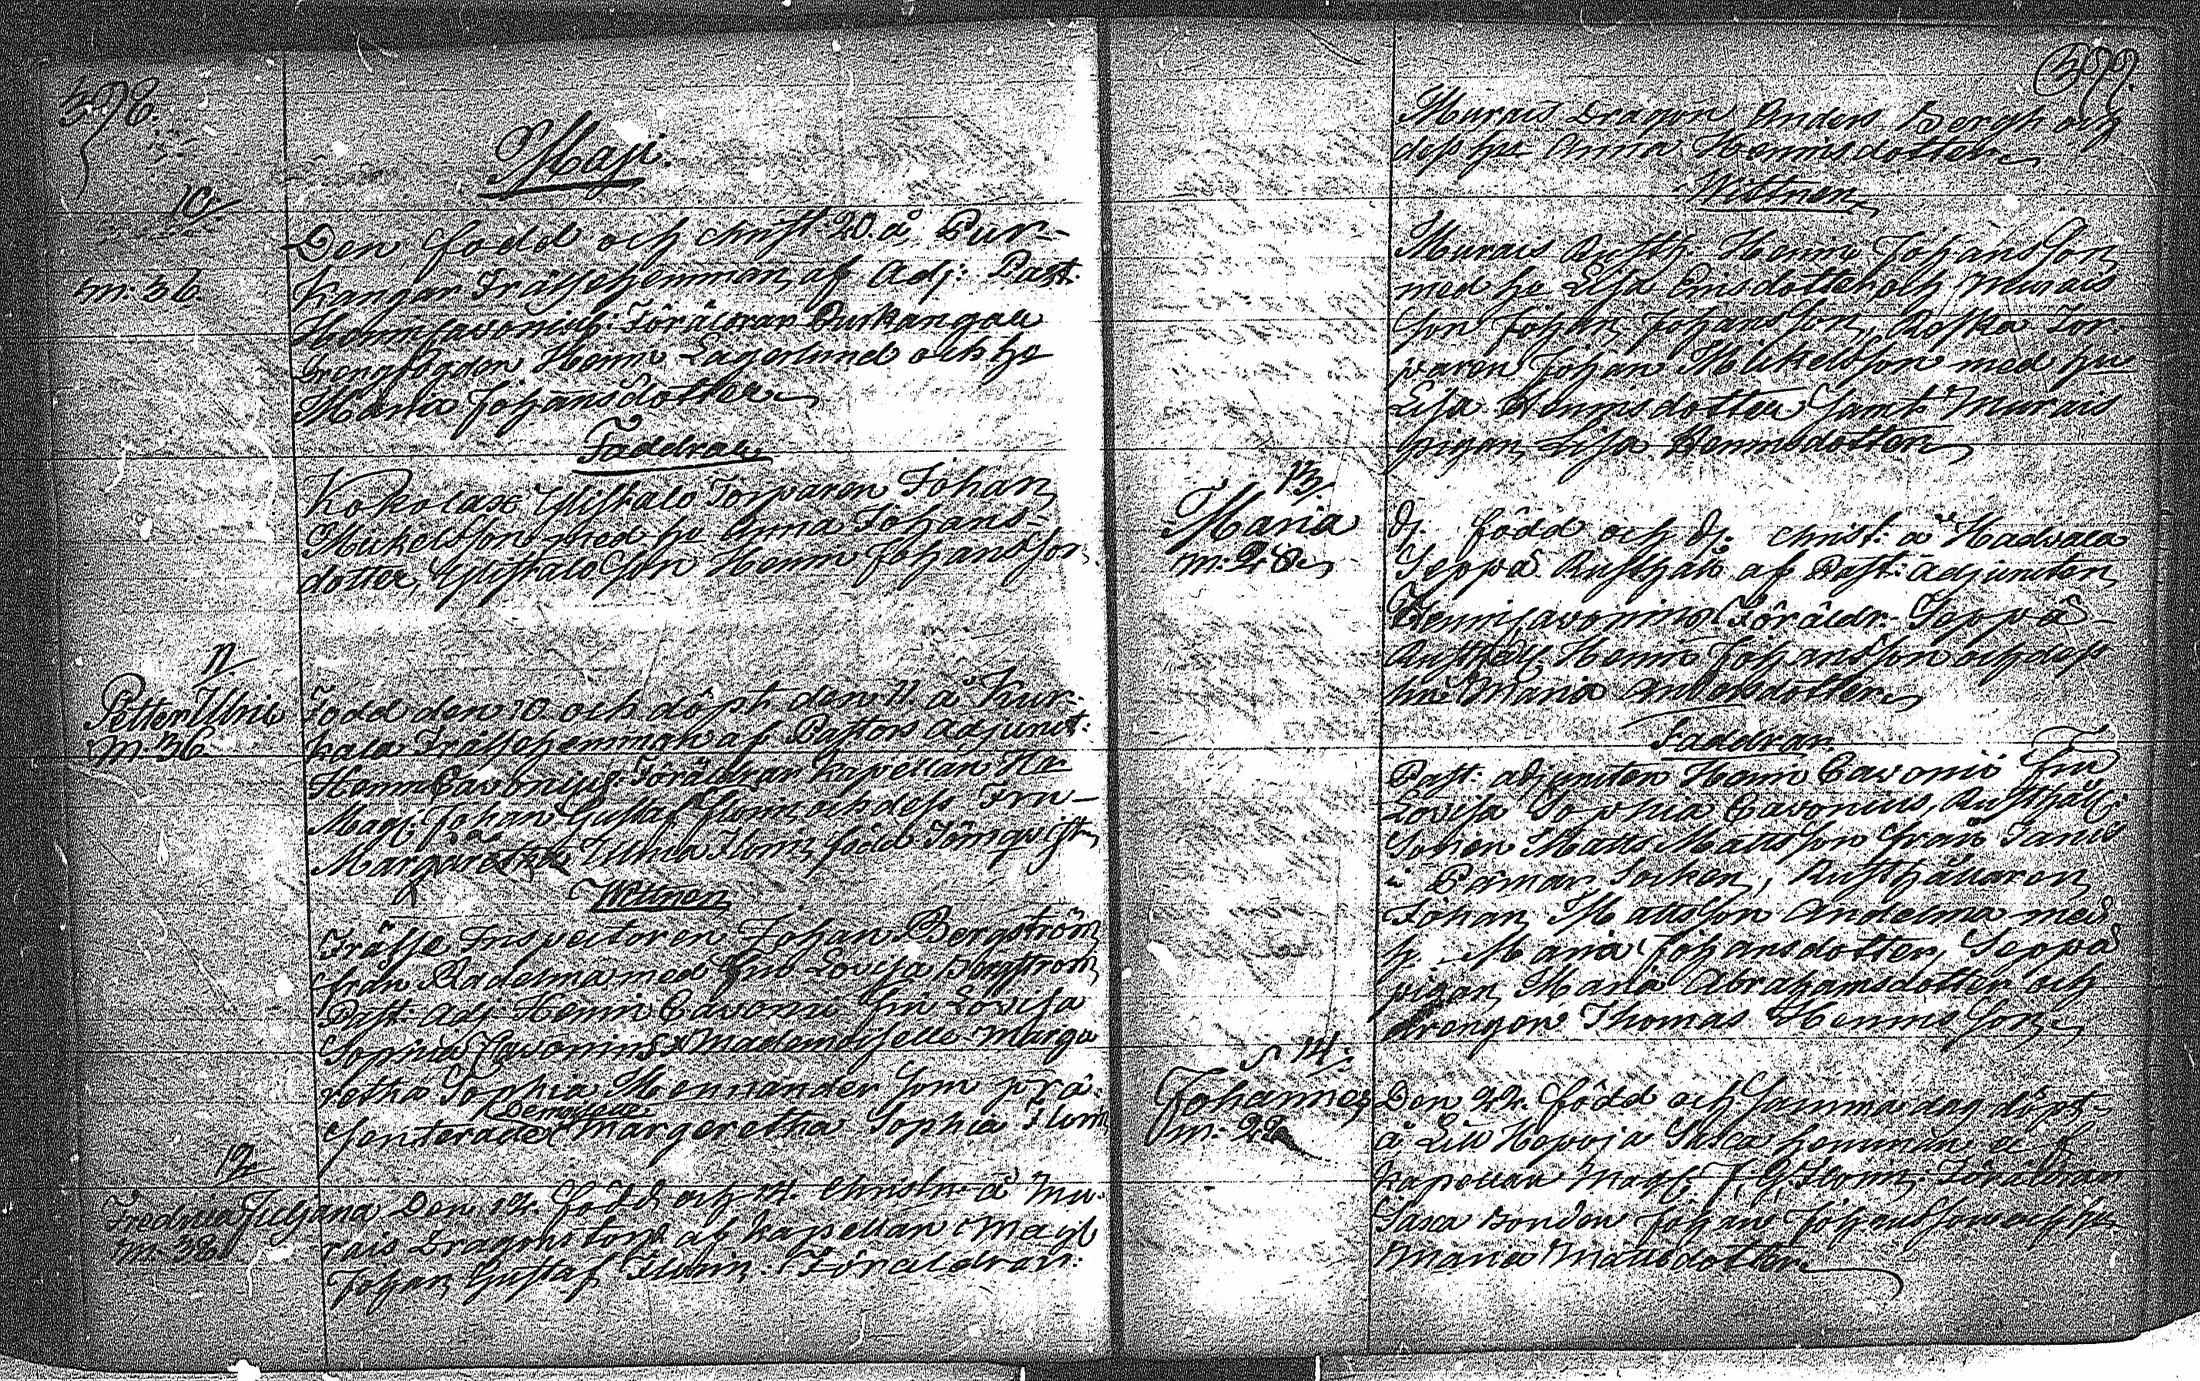 376.
Maji.
10
m: 36.
Den född och christ: 20. å Pur-
kangar Frälsehemman af Adj: Past:
Henric Cavonius. Föräldrar Purkangar
Drengfogden Henric Lagerlund och hu
Maria Johansdotter
Faddrar
Kokolax Torparen Johan
Mickelsson med hu Anna Johans-
dotter, Son Henric Johansson
11
Petter Ulric
m. 36
Född den 10. och döpt den 11. å Kur-
kala Frälsehemman af Pastors Adjunct:
Henric Cavonius Föräldrar Kapellan
Mag: Johan Gustaf Florin och dess Fru
Margaretha Ulrica Florin, född Törnqvist
Witnen
Frälse Inspectoren Johan Bergström
från Radelma med fru Lovisa Bergström
Past: Adj: Henric Cavonius fru Lovisa
Sophia Cavonius, Mademoiselle Marga
retha Sophia Menander som præ-
senterade Demoiselle Margeretha Sophia Florin
12
Fredrica Juliana
m. 38.
Den 12. född och 14. Christn: å Mu-
rais Dragons torp af kapellan Mag:
Johan Gustaf Florin. Föräldrar:
377.
Murais Dragon Anders Bergh och
dess hu Anna Henricsdotter
Witnen
Murais Rusth: Henric Johansson
med hu Lisa Ericsdotter och Murais
son Johan Johansson, Tor-
paren Johan Mickelsson med hu
Lisa Henricsdotter samt Murais
pigan Lisa Henricsdotter
13.
Maria
m: 28.
dj. född och dj. christ: å Hadvala
Seppä Rusthåll af Past: adjuncten
Henric Cavonius Föräldr: Seppä
Rusthåll: Henric Johansson och dess
hu Maria Andersdotter
Faddrar
Past: adjuncten Henric Cavonii fru
Lovisa Sophia Cavonius, Rusthåll:
Sonen Matts Mattsson från
i Pemar Socken, Rusthållaren
Johan Mattsson Andelma med
h. Maria Johansdotter, Seppä
pigan Maria Abrahamsdotter och
drengen Thomas Henricsson
14.
Johannes
m: 22
Den 22. född och samma dag döpt
å Lill Hepoja Saxa hemman af
kapellan Mag: J. G. Florin, Föräldrar
Saxa Bonden Johan Johansson och hu
Maria Mattsdotter